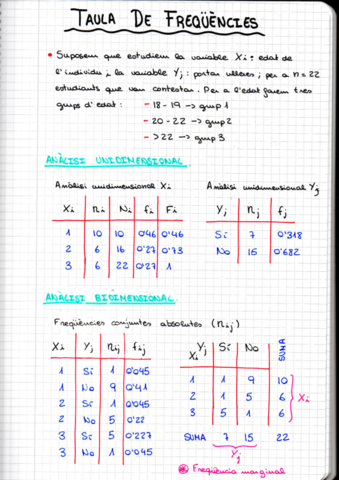 TAULA DE FREQÜÈNCIES
• Suposem que estudiem la variable Xi: edat de
l'individu i la variable Yj: portar ulleres; per a n = 22
estudiants que van contestar. Per a l'edat farem tres
grups d'edat: - 18 - 19 -> grup 1
- 20 - 22 -> grup 2
- > 22 -> grup 3
ANÀLISI UNIDIMENSIONAL
Anàlisi unidimensional Xi
Xi ni Ni fi Fi
1 10 10 0'46 0'46
2 6 16 0'27 0'73
3 6 22 0'27 1
Anàlisi unidimensional Yj
Yj nj fj
Sí 7 0'318
No 15 0'682
ANÀLISI BIDIMENSIONAL
Freqüències conjuntes absolutes (nij)
Xi Yj nij fij
1 Sí 1 0'045
1 No 9 0'41
2 Sí 1 0'045
2 No 5 0'22
3 Sí 5 0'227
3 No 1 0'045
Xi Yj Sí No SUMA
1 1 9 10
2 1 5 6
3 5 1 6
Xi
SUMA 7 15 22
Yj
Freqüència marginal